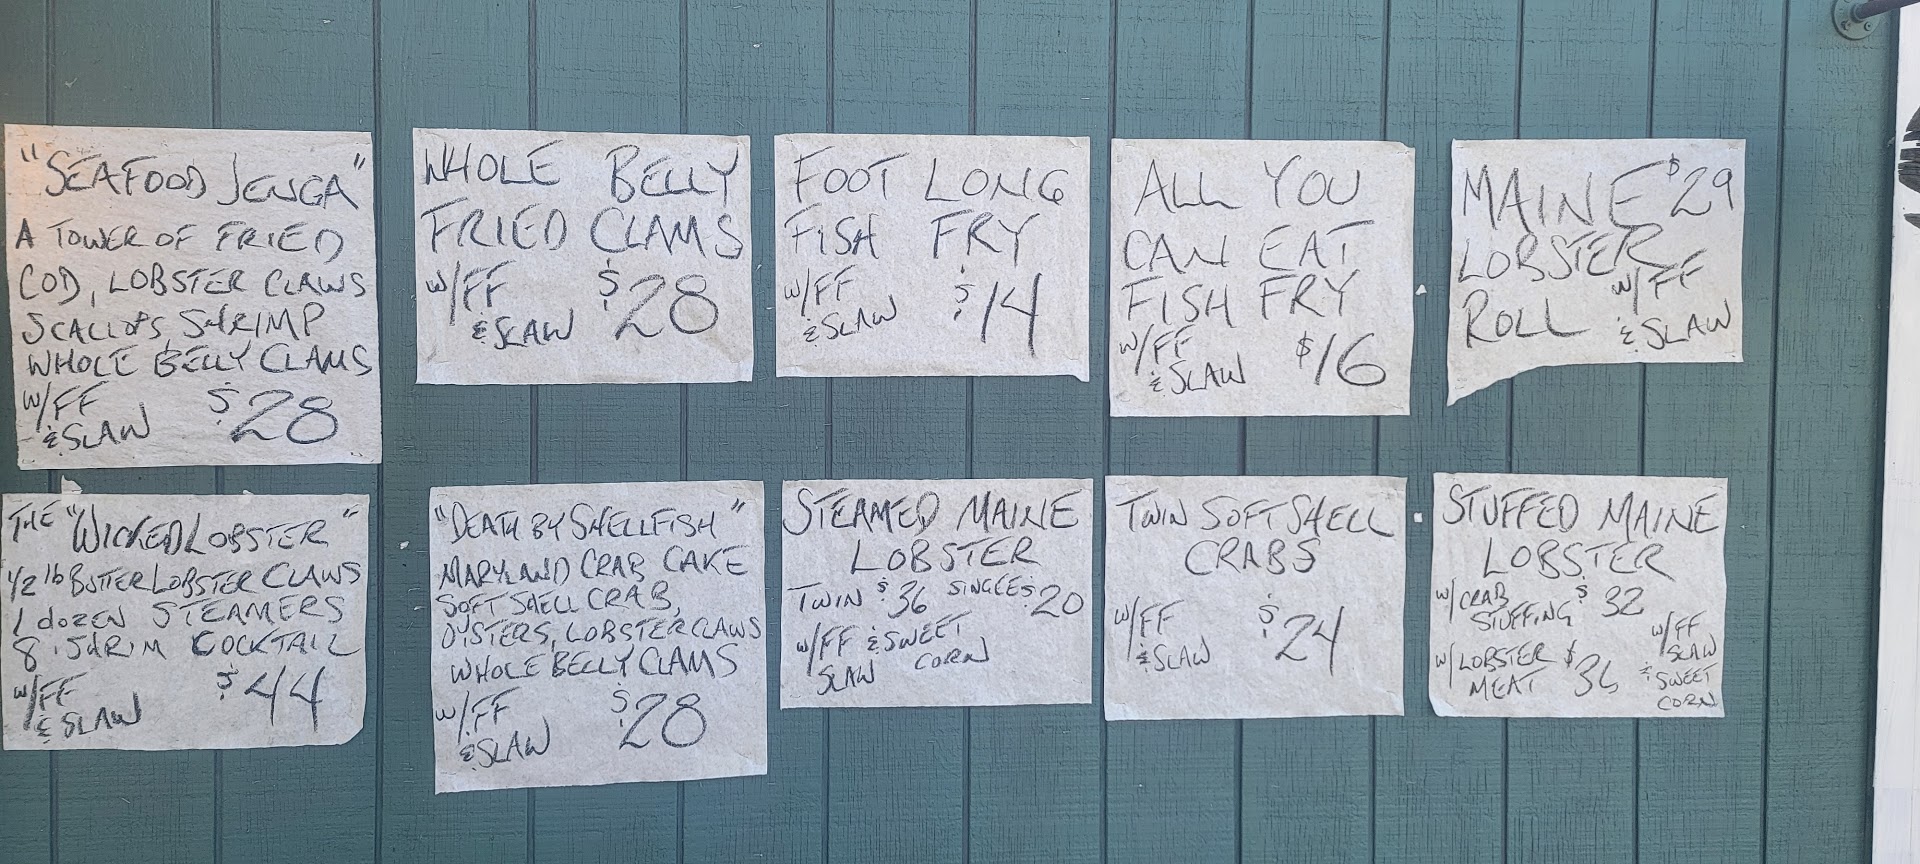 "SEAFOOD JENGA"
A TOWER OF FRIED
COD, LOBSTER CLAWS
SCALLOPS, SHRIMP
WHOLE BELLY CLAMS
W/FF
& SLAW $28
WHOLE BELLY
FRIED CLAMS
W/FF
& SLAW $28
FOOT LONG
FISH FRY
W/FF
& SLAW $14
ALL YOU
CAN EAT
FISH FRY
W/FF
& SLAW $16
MAINE $29
LOBSTER
ROLL W/FF
& SLAW
THE "WICKED LOBSTER"
1/2 lb BUTTER LOBSTER CLAWS
1 dozen STEAMERS
8 SHRIM COCKTAIL
W/FF
& SLAW $44
"DEATH BY SHELLFISH"
MARYLAND CRAB CAKE
SOFT SHELL CRAB,
OYSTERS, LOBSTER CLAWS
WHOLE BELLY CLAMS
W/FF
& SLAW $28
STEAMED MAINE
LOBSTER
TWIN $36 SINGLES $20
W/FF & SWEET
SLAW CORN
TWIN SOFT SHELL
CRABS
W/FF
& SLAW $24
STUFFED MAINE
LOBSTER
W/CRAB
STUFFING $32
W/LOBSTER
MEAT $36
W/FF
SLAW
& SWEET
CORN